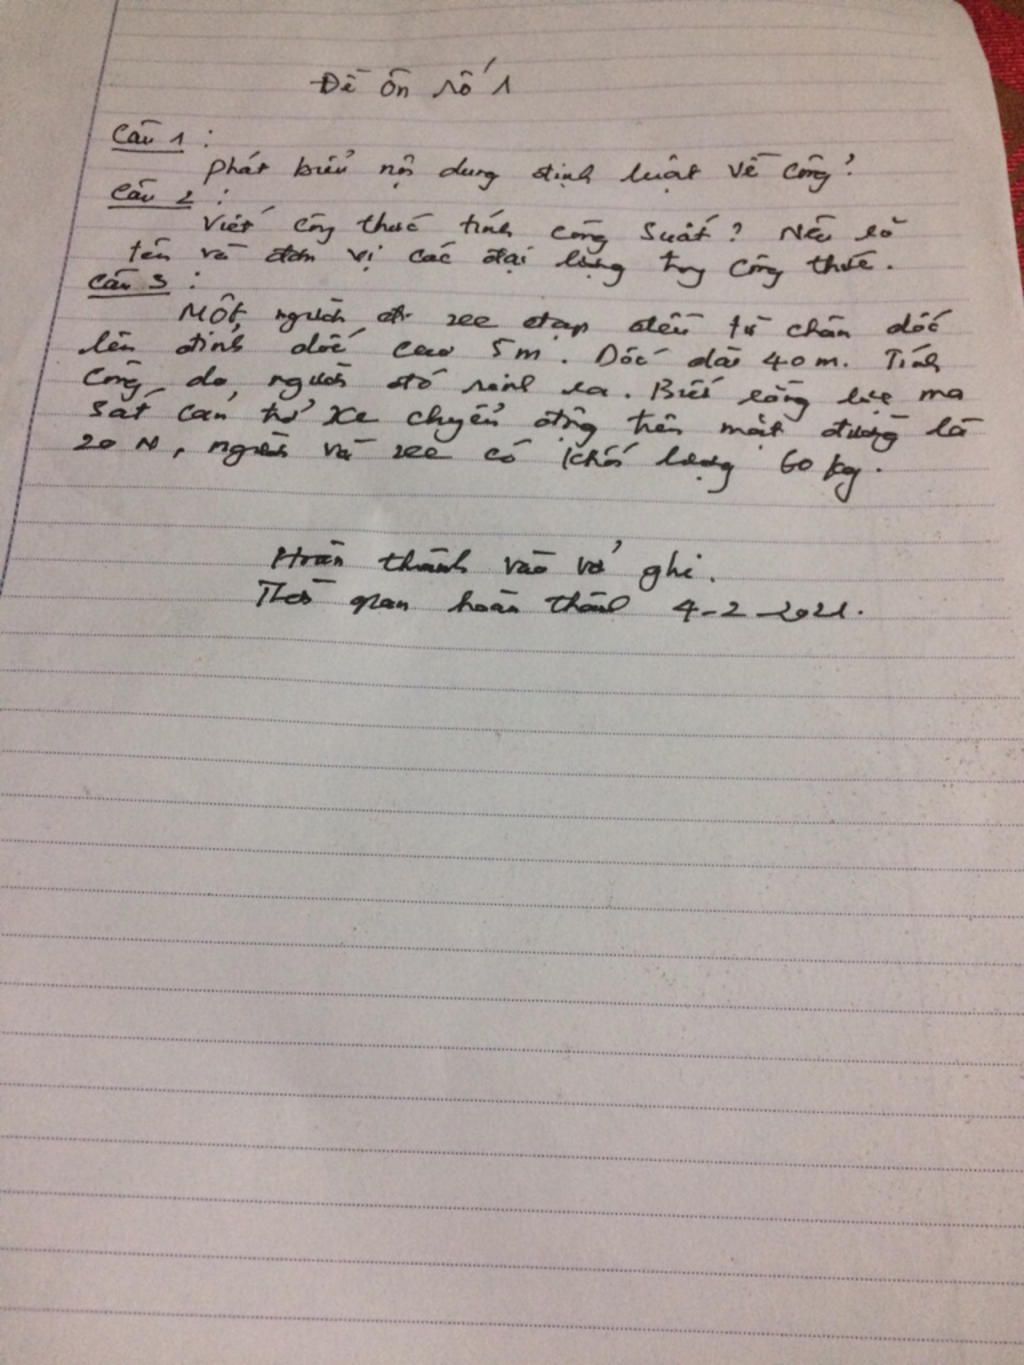 Đề ôn số 1
Câu 1 :
Phát biểu nội dung định luật về công?
Câu 2 :
Viết công thức tính công suất? Nêu rõ
tên và đơn vị các đại lượng trong công thức.
Câu 3 :
Một người đi xe đạp đều từ chân dốc
lên đỉnh dốc cao 5m. Dốc dài 40m. Tính
công do người đó sinh ra. Biết rằng lực ma
sát cản trở xe chuyển động trên mặt đường là
20 N, người và xe có khối lượng 60 kg.
Hoàn thành vào vở ghi.
Thời gian hoàn thành 4-2-2021.